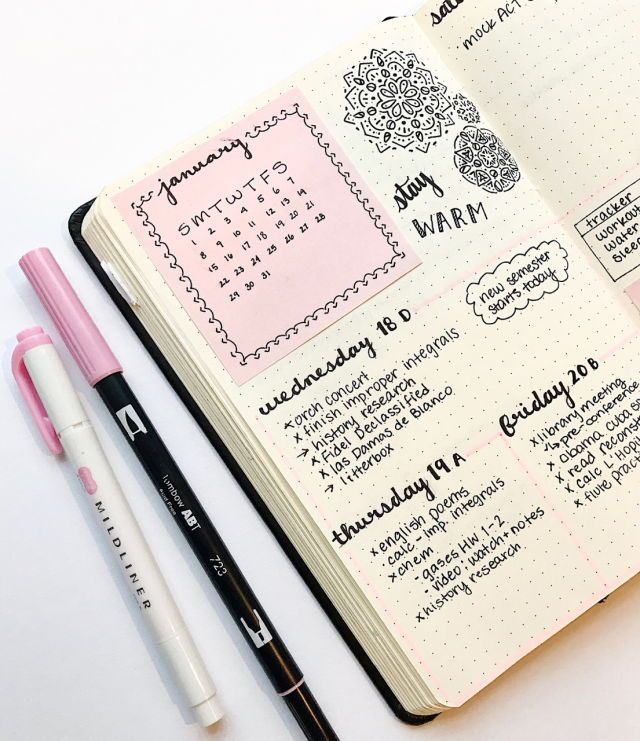 january
S M T W T F S
1 2 3 4 5 6 7
8 9 10 11 12 13 14
15 16 17 18 19 20 21
22 23 24 25 26 27 28
29 30 31
stay
WARM
new semester
starts today
wednesday 18 D
orch concert
x finish improper integrals
> history research
x Fidel Declassified
x las Damas de Blanco
> litterbox
thursday 19 A
x english poems
x calc - imp. integrals
x chem
- gases HW 1-2
- video: watch + notes
x history research
mock ACT
tracker
workout
water
sleep
friday 20 B
x library meeting
↳ pre-conference
x obama cuba
x read
x calc L'
x flute
MILDLINER
Tombow ABT
Acid Free
723